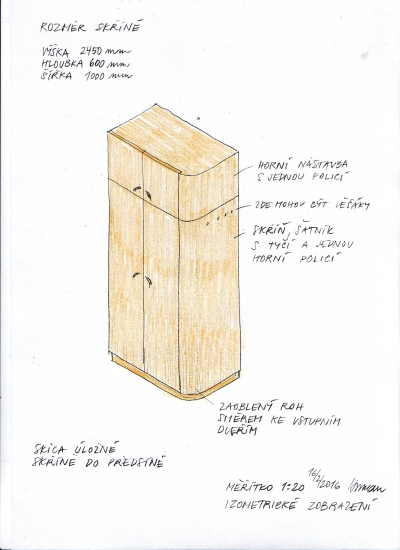 ROZMĚR SKŘÍNĚ
VÝŠKA 2450 mm
HLOUBKA 600 mm
ŠÍŘKA 1000 mm
HORNÍ NÁSTAVBA
S JEDNOU POLICÍ
ZDE MOHOU BÝT VĚŠÁKY
SKŘÍŇ, ŠATNÍK
S TYČÍ A JEDNOU
HORNÍ POLICÍ
ZAOBLENÝ ROH
SMĚREM KE VSTUPNÍM
DVEŘÍM
SKICA ÚLOŽNÉ
SKŘÍNĚ DO PŘEDSÍNĚ
MĚŘÍTKO 1:20 16/2/2016
IZOMETRICKÉ ZOBRAZENÍ